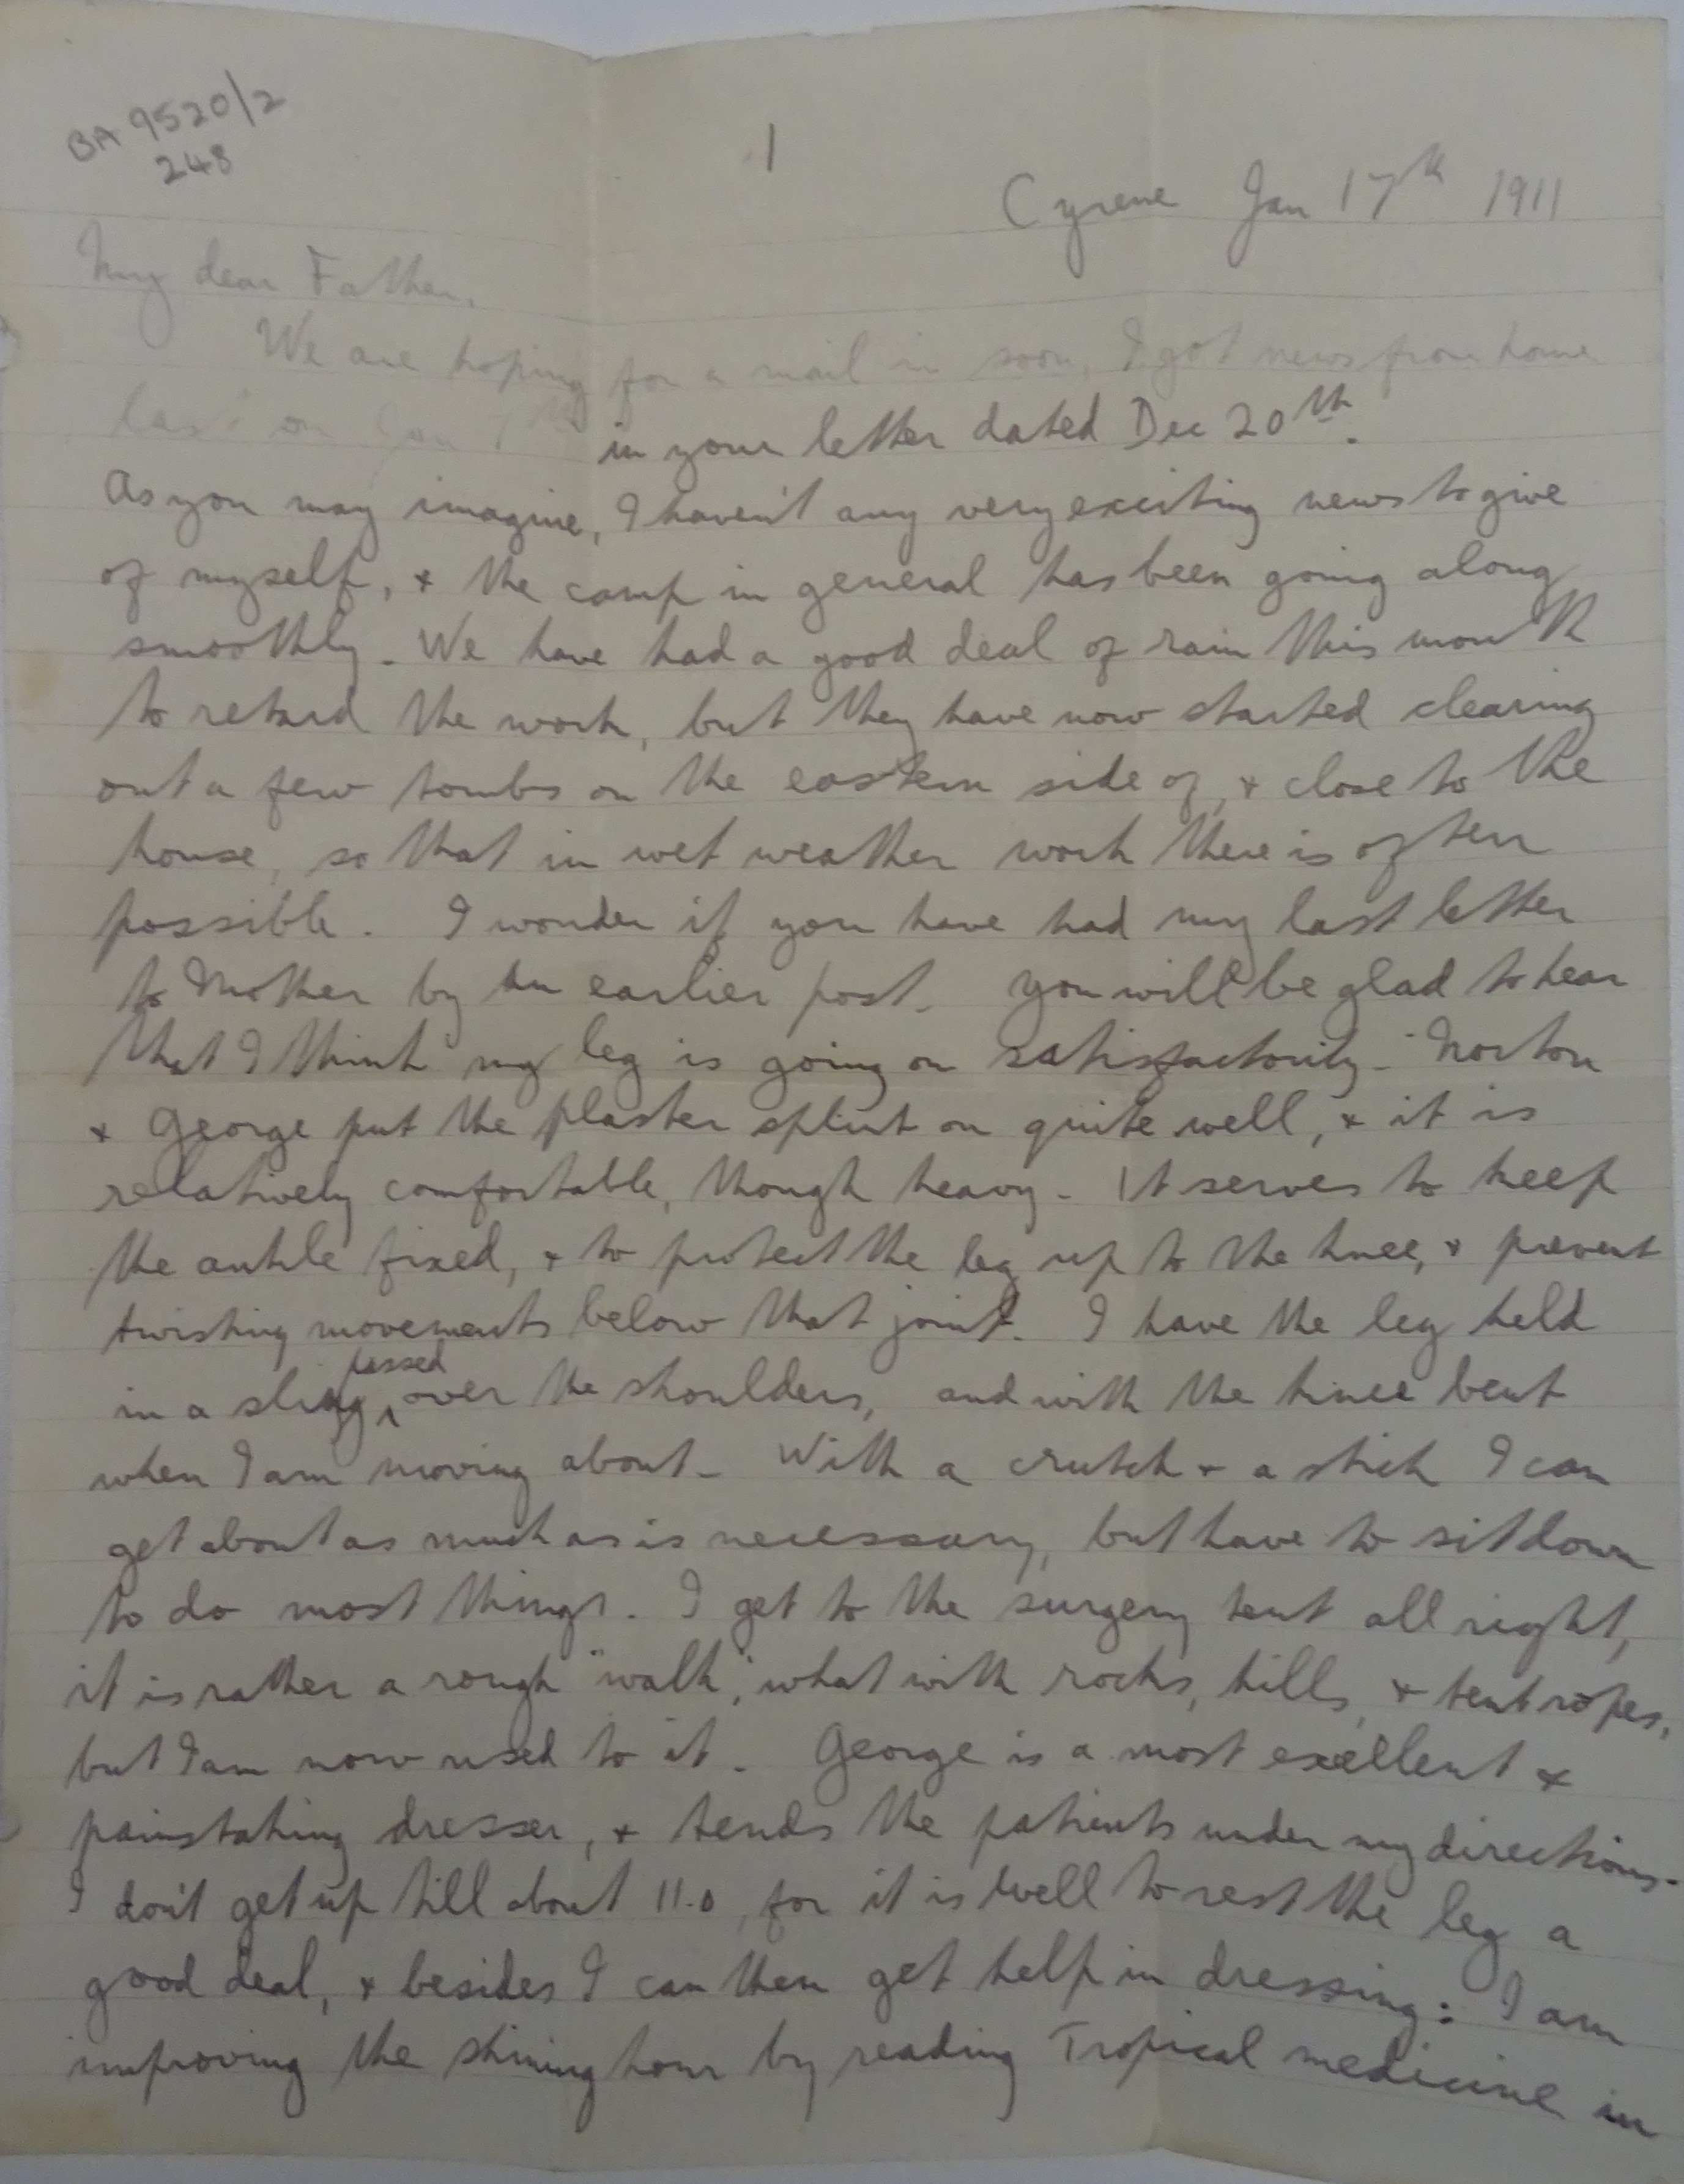 BA 9520/2
248
1
Cyrene Jan 17th 1911
My dear Father,
We are hoping for a mail in soon, I got news from home
last on Jan 7th in your letter dated Dec 20th.
As you may imagine, I haven't any very exciting news to give
of myself, & the camp in general has been going along
smoothly. We have had a good deal of rain this month
to retard the work, but they have now started clearing
out a few tombs on the eastern side of, & close to the
house, so that in wet weather work there is often
possible. I wonder if you have had my last letter
to Mother by an earlier post. You will be glad to hear
that I think my leg is going on satisfactorily. Norton
& George put the plaster splint on quite well, & it is
relatively comfortable, though heavy. It serves to keep
the ankle fixed, & to protect the leg up to the knee, & prevent
twisting movements below that joint. I have the leg held
in a sling, passed over the shoulders, and with the knee bent
when I am moving about. With a crutch & a stick I can
get about as much as is necessary, but have to sit down
to do most things. I get to the surgery tent all right,
it is rather a rough "walk", what with rocks, hills, & tent ropes,
but I am now used to it. George is a most exellent &
painstaking dresser, & tends the patients under my directions.
I don't get up till about 11.0, for it is well to rest the leg a
good deal, & besides I can then get help in dressing: I am
improving the shining hour by reading Tropical medicine in